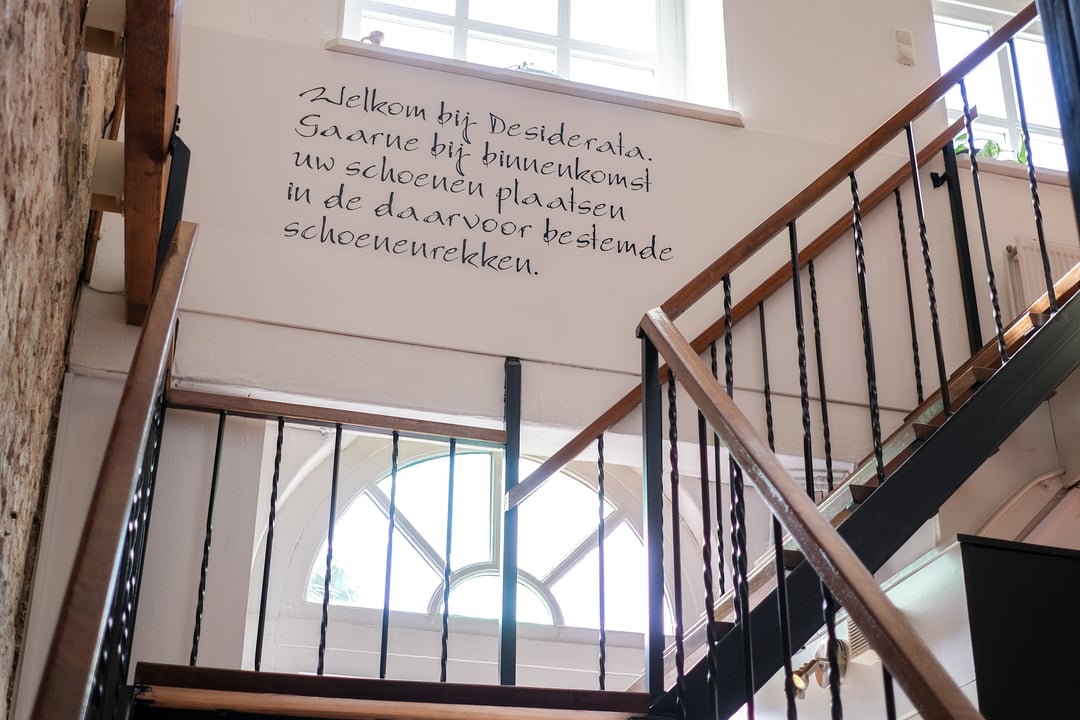 Welkom bij Desiderata.
Gaarne bij binnenkomst
uw schoenen plaatsen
in de daarvoor bestemde
schoenenrekken.